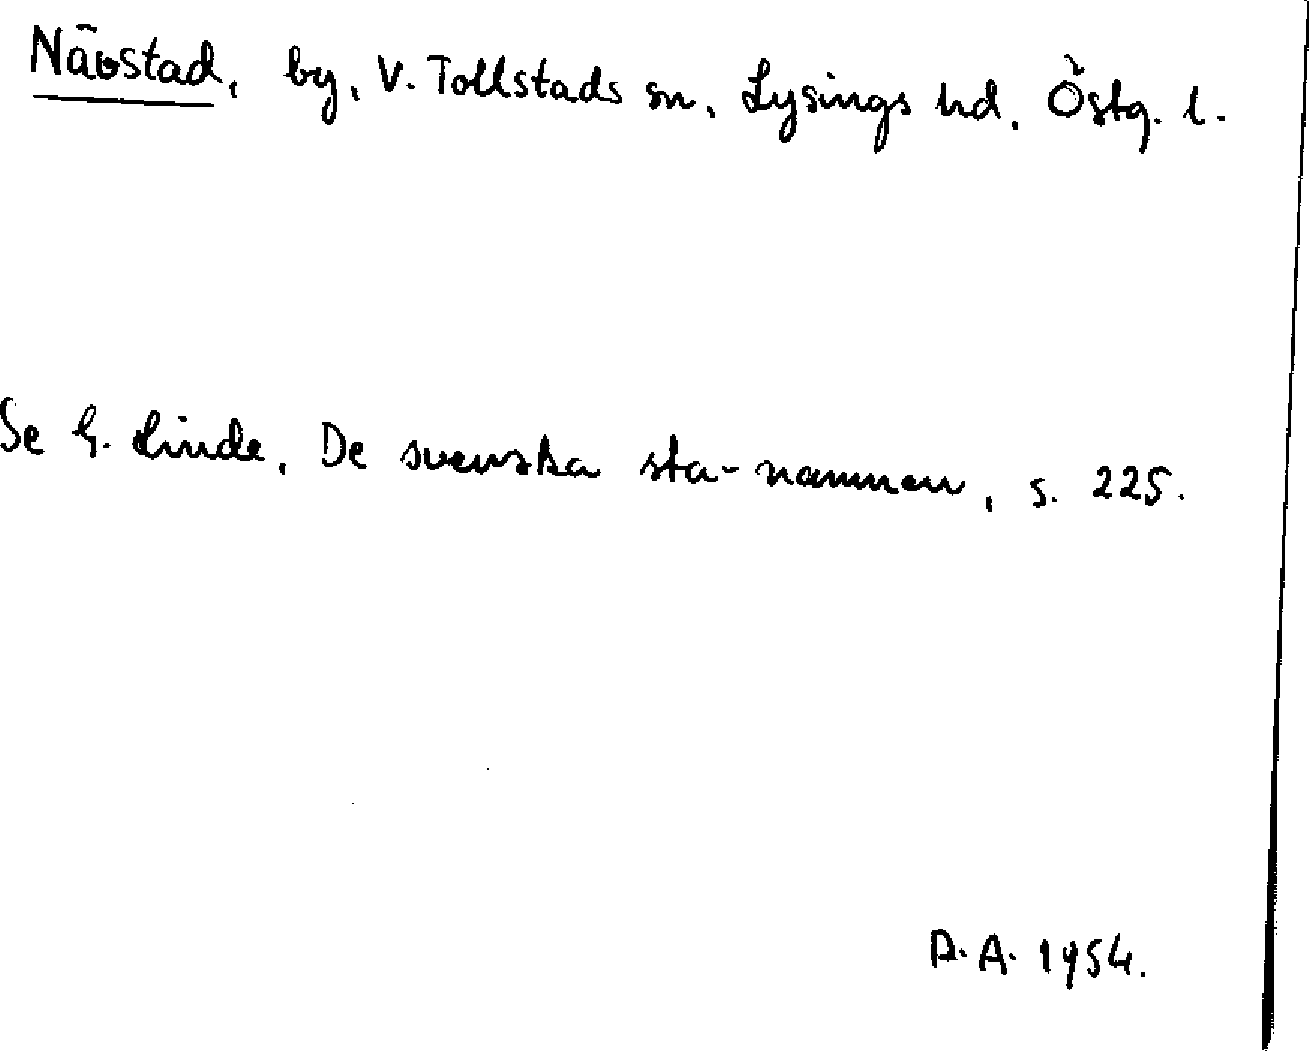 Nävstad, by, V. Tollstads sn, Lysings hd, Östg. l.
Se G. Linde, De svenska sta-namnen, s. 225.
D. A. 1954.